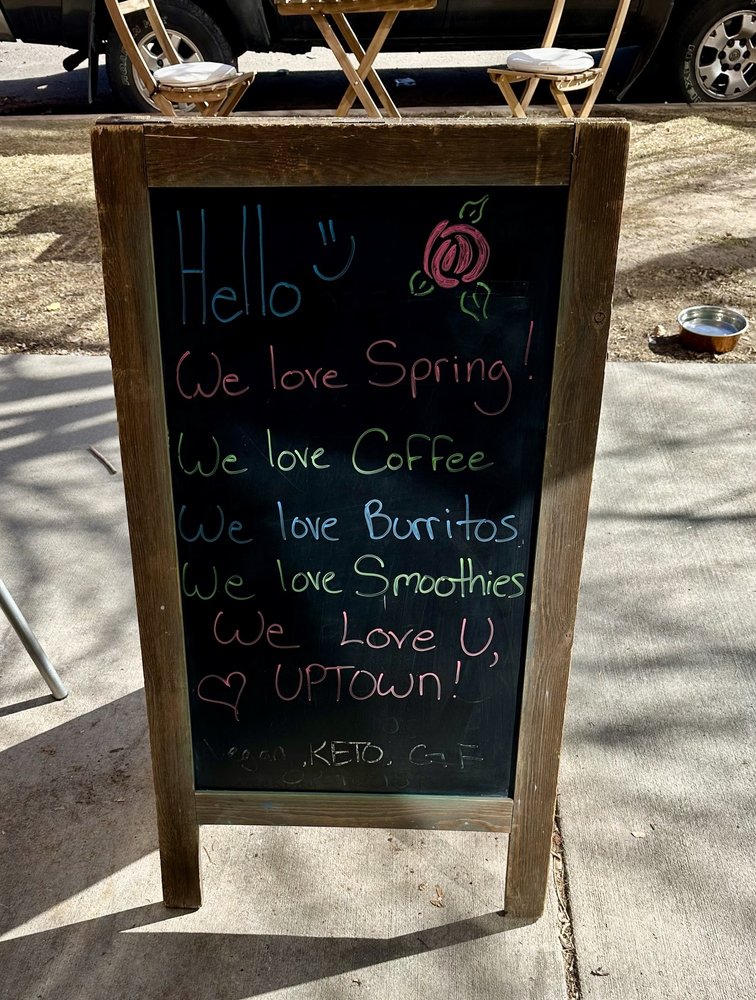 Hello
We love Spring!
We love Coffee
We love Burritos
We love Smoothies
We Love U,
UPTOWN!
Vegan, KETO, GF